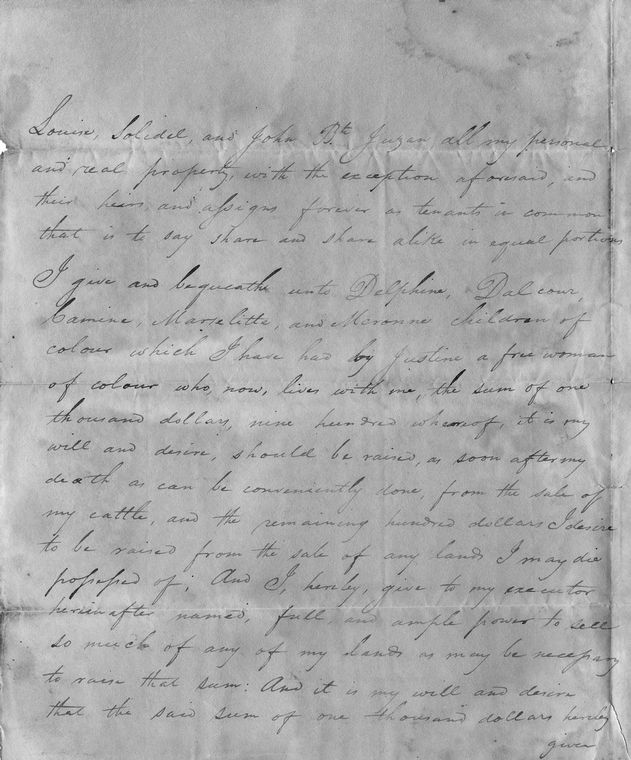 Louise, Solidel, and John Bte Juzan, all my personal
and real property, with the exception aforesaid, and
their heirs and assigns forever as tenants in common
that is to say share and share alike in equal portions
I give and bequeathe unto Delphine, Dalcour,
Camine, Marselitte, and Meronne children of
colour which I have had by Justine a free woman
of colour who, now, lives with me, the sum of one
thousand dollars, nine hundred whereof, it is my
will and desire, should be raised, as soon after my
death as can be conveniently done, from the sale of
my cattle, and the remaining hundred dollars I desire
to be raised from the sale of any lands I may die
possessed of; And I, hereby, give to my executor
herein after named, full, and ample power to sell
so much of any of my lands as may be necessary
to raise that sum: And it is my will and desire
that the said sum of one thousand dollars hereby
given